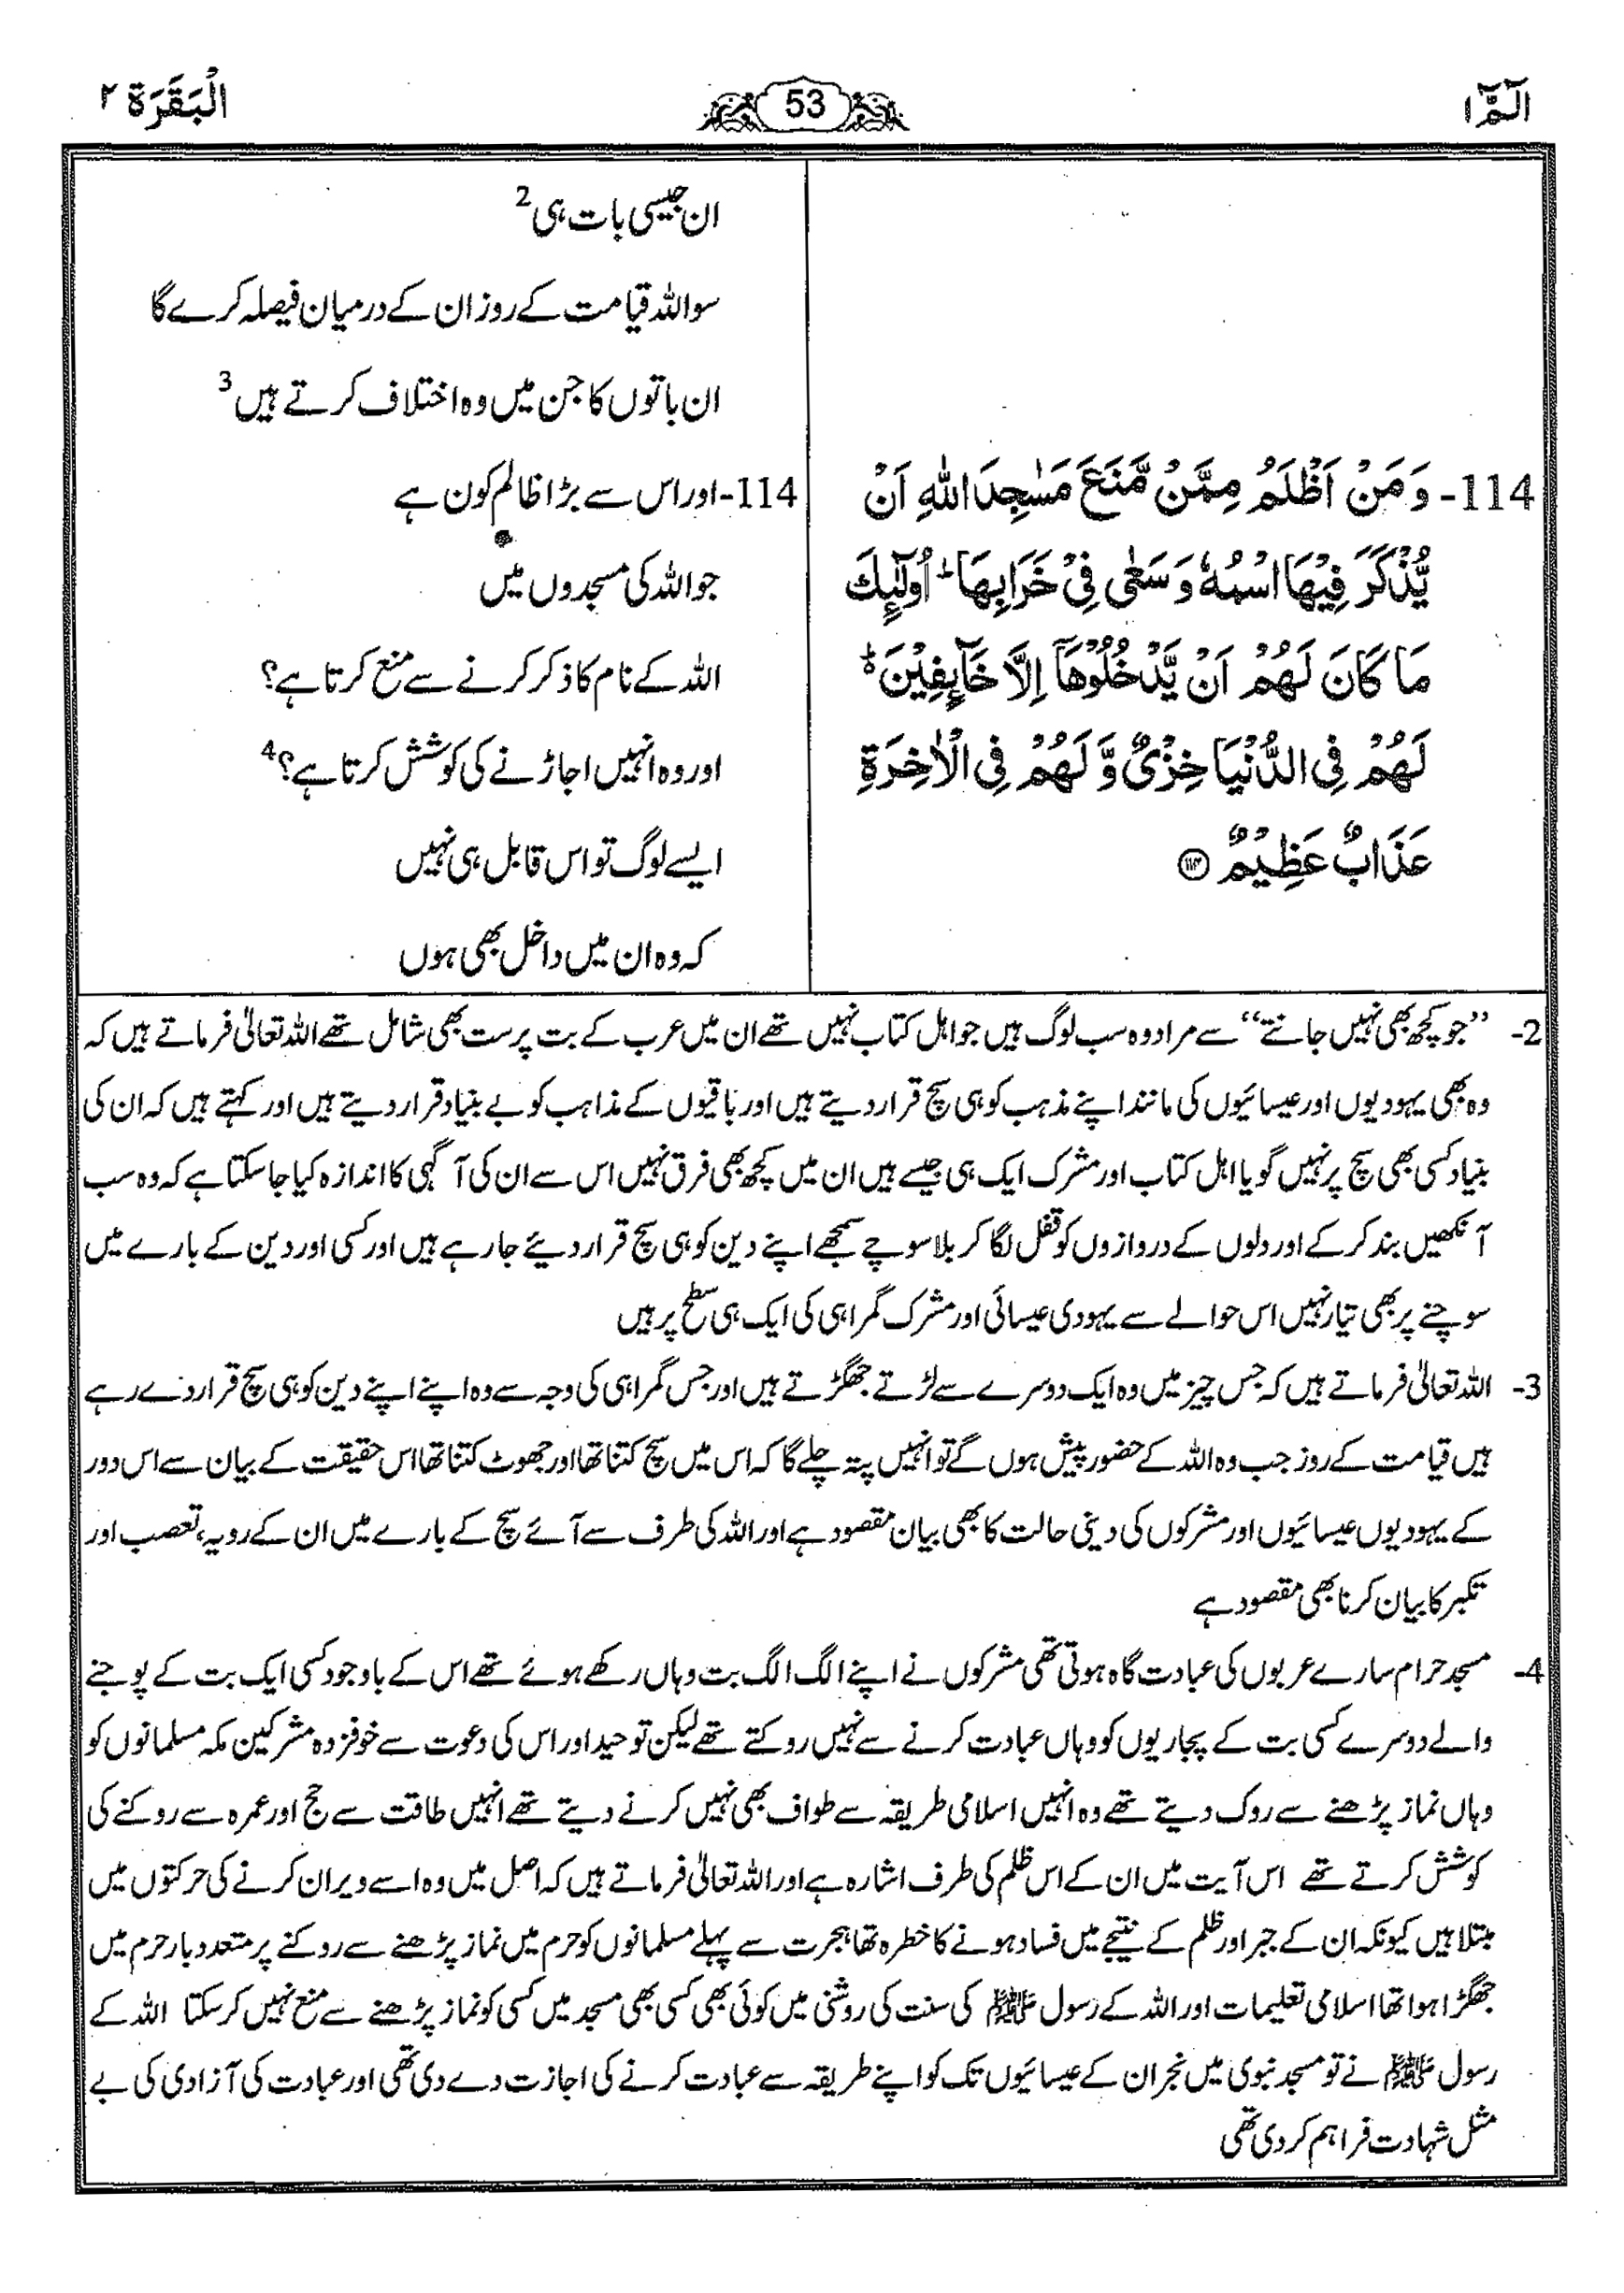 الٓمّٓ ١
53
الْبَقَرَة ٢
114- وَمَنْ اَظْلَمُ مِمَّنْ مَّنَعَ مَسٰجِدَ اللّٰهِ اَنْ
يُّذْكَرَ فِيْهَا اسْمُهٗ وَسَعٰى فِيْ خَرَابِهَا ؕ اُولٰٓئِكَ
مَا كَانَ لَهُمْ اَنْ يَّدْخُلُوْهَاۤ اِلَّا خَآئِفِيْنَ ؕ
لَهُمْ فِي الدُّنْيَا خِزْيٌ وَّلَهُمْ فِي الْاٰخِرَةِ
عَذَابٌ عَظِيْمٌ ﴿۱۱۴﴾
ان جیسی بات ہی 2
سو اللہ قیامت کے روز ان کے درمیان فیصلہ کرے گا
ان باتوں کا جن میں وہ اختلاف کرتے ہیں 3
114- اور اس سے بڑا ظالم کون ہے
جو اللہ کی مسجدوں میں
اللہ کے نام کا ذکر کرنے سے منع کرتا ہے؟
اور وہ انہیں اجاڑنے کی کوشش کرتا ہے؟ 4
ایسے لوگ تو اس قابل ہی نہیں
کہ وہ ان میں داخل بھی ہوں
2- ”جو کچھ بھی نہیں جانتے“ سے مراد وہ سب لوگ ہیں جو اہل کتاب نہیں تھے ان میں عرب کے بت پرست بھی شامل تھے اللہ تعالیٰ فرماتے ہیں کہ
وہ بھی یہودیوں اور عیسائیوں کی مانند اپنے مذہب کو ہی سچ قرار دیتے ہیں اور باقیوں کے مذاہب کو بے بنیاد قرار دیتے ہیں اور کہتے ہیں کہ ان کی
بنیاد کسی بھی سچ پر نہیں گویا اہل کتاب اور مشرک ایک ہی جیسے ہیں ان میں کچھ بھی فرق نہیں اس سے ان کی آگہی کا اندازہ کیا جا سکتا ہے کہ وہ سب
آنکھیں بند کر کے اور دلوں کے دروازوں کو قفل لگا کر بلا سوچے سمجھے اپنے دین کو ہی سچ قرار دیئے جا رہے ہیں اور کسی اور دین کے بارے میں
سوچنے پر بھی تیار نہیں اس حوالے سے یہودی عیسائی اور مشرک گمراہی کی ایک ہی سطح پر ہیں
3- اللہ تعالیٰ فرماتے ہیں کہ جس چیز میں وہ ایک دوسرے سے لڑتے جھگڑتے ہیں اور جس گمراہی کی وجہ سے وہ اپنے اپنے دین کو ہی سچ قرار دے رہے
ہیں قیامت کے روز جب وہ اللہ کے حضور پیش ہوں گے تو انہیں پتہ چلے گا کہ اس میں سچ کتنا تھا اور جھوٹ کتنا تھا اس حقیقت کے بیان سے اس دور
کے یہودیوں عیسائیوں اور مشرکوں کی دینی حالت کا بھی بیان مقصود ہے اور اللہ کی طرف سے آئے سچ کے بارے میں ان کے رویہ، تعصب اور
تکبر کا بیان کرنا بھی مقصود ہے
4- مسجد حرام سارے عربوں کی عبادت گاہ ہوتی تھی مشرکوں نے اپنے الگ الگ بت وہاں رکھے ہوئے تھے اس کے باوجود کسی ایک بت کے پوجنے
والے دوسرے کسی بت کے پجاریوں کو وہاں عبادت کرنے سے نہیں روکتے تھے لیکن توحید اور اس کی دعوت سے خوفزدہ مشرکین مکہ مسلمانوں کو
وہاں نماز پڑھنے سے روک دیتے تھے وہ انہیں اسلامی طریقہ سے طواف بھی نہیں کرنے دیتے تھے انہیں طاقت سے حج اور عمرہ سے روکنے کی
کوشش کرتے تھے اس آیت میں ان کے اس ظلم کی طرف اشارہ ہے اور اللہ تعالیٰ فرماتے ہیں کہ اصل میں وہ اسے ویران کرنے کی حرکتوں میں
مبتلا ہیں کیونکہ ان کے جبر اور ظلم کے نتیجے میں فساد ہونے کا خطرہ تھا ہجرت سے پہلے مسلمانوں کو حرم میں نماز پڑھنے سے روکنے پر متعدد بار حرم میں
جھگڑا ہوا تھا اسلامی تعلیمات اور اللہ کے رسول ﷺ کی سنت کی روشنی میں کوئی بھی کسی بھی مسجد میں کسی کو نماز پڑھنے سے منع نہیں کر سکتا اللہ کے
رسول ﷺ نے تو مسجد نبوی میں نجران کے عیسائیوں تک کو اپنے طریقہ سے عبادت کرنے کی اجازت دے دی تھی اور عبادت کی آزادی کی بے
مثل شہادت فراہم کر دی تھی